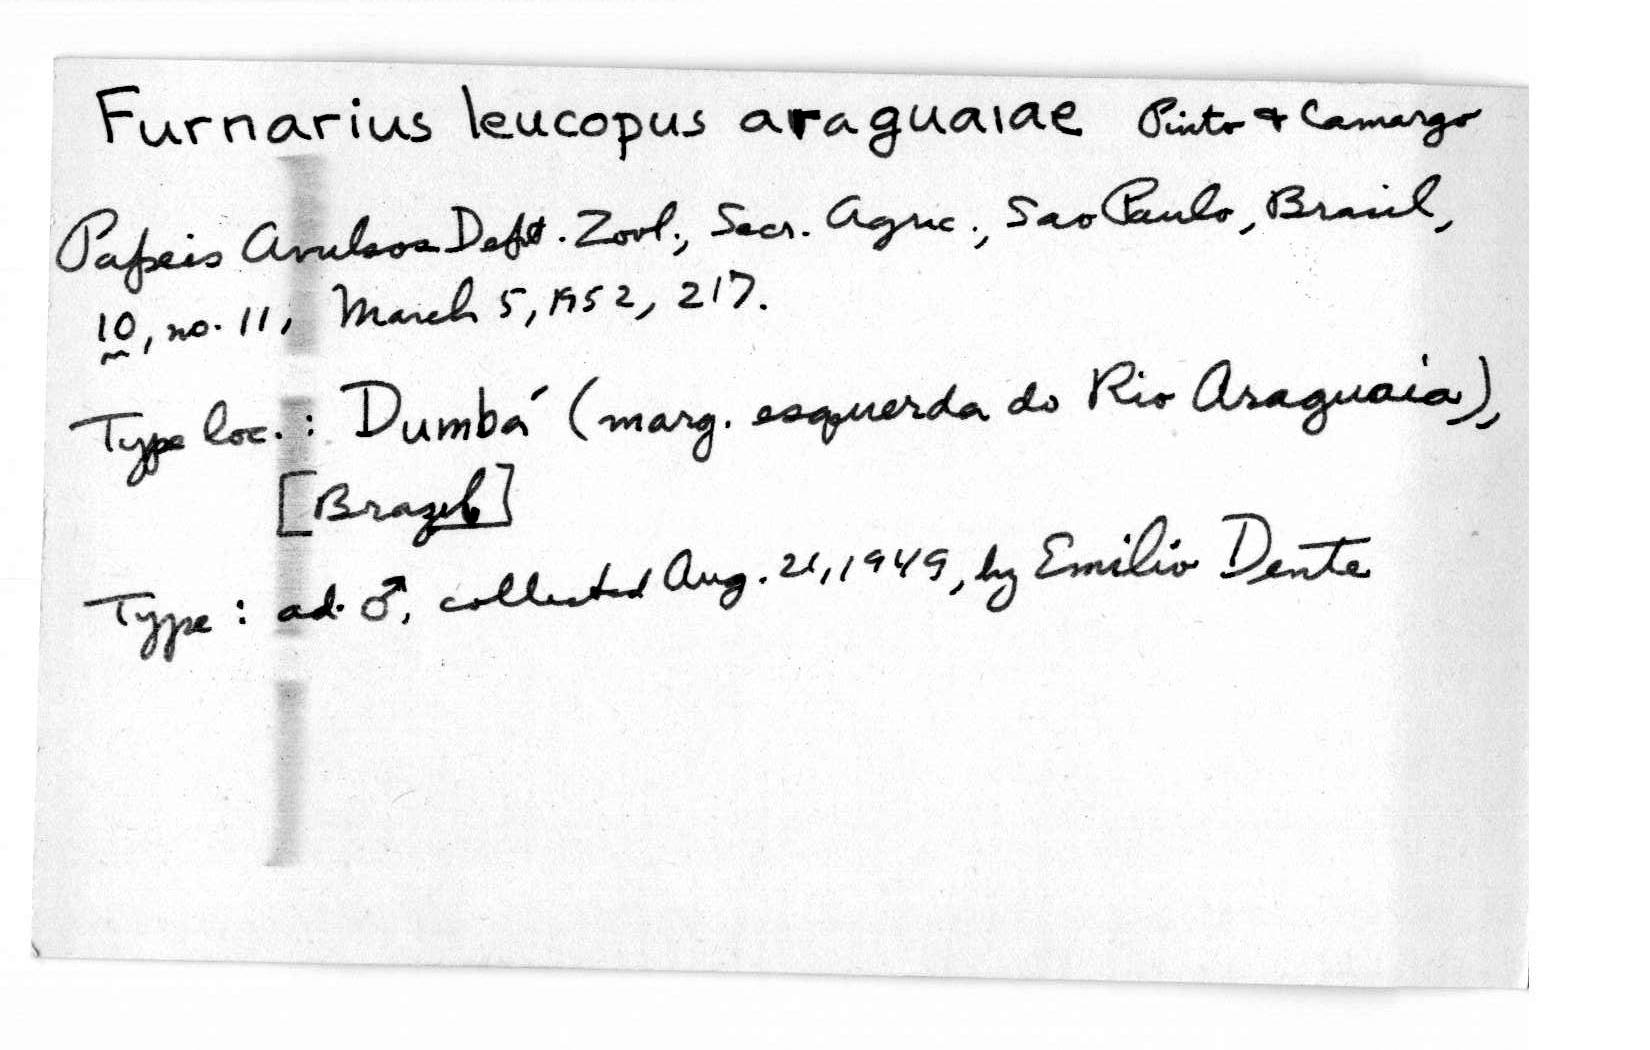 Furnarius leucopus araguaiae Pinto & Camargo
Papeis Avulsos Dept. Zool., Secr. Agric., Sao Paulo, Brasil,
10, no. 11, March 5, 1952, 217.
Type loc.: Dumbá (marg. esquerda do Rio Araguaia),
[Brazil]
Type: ad. ♂, collected Aug. 21, 1949, by Emilio Dente